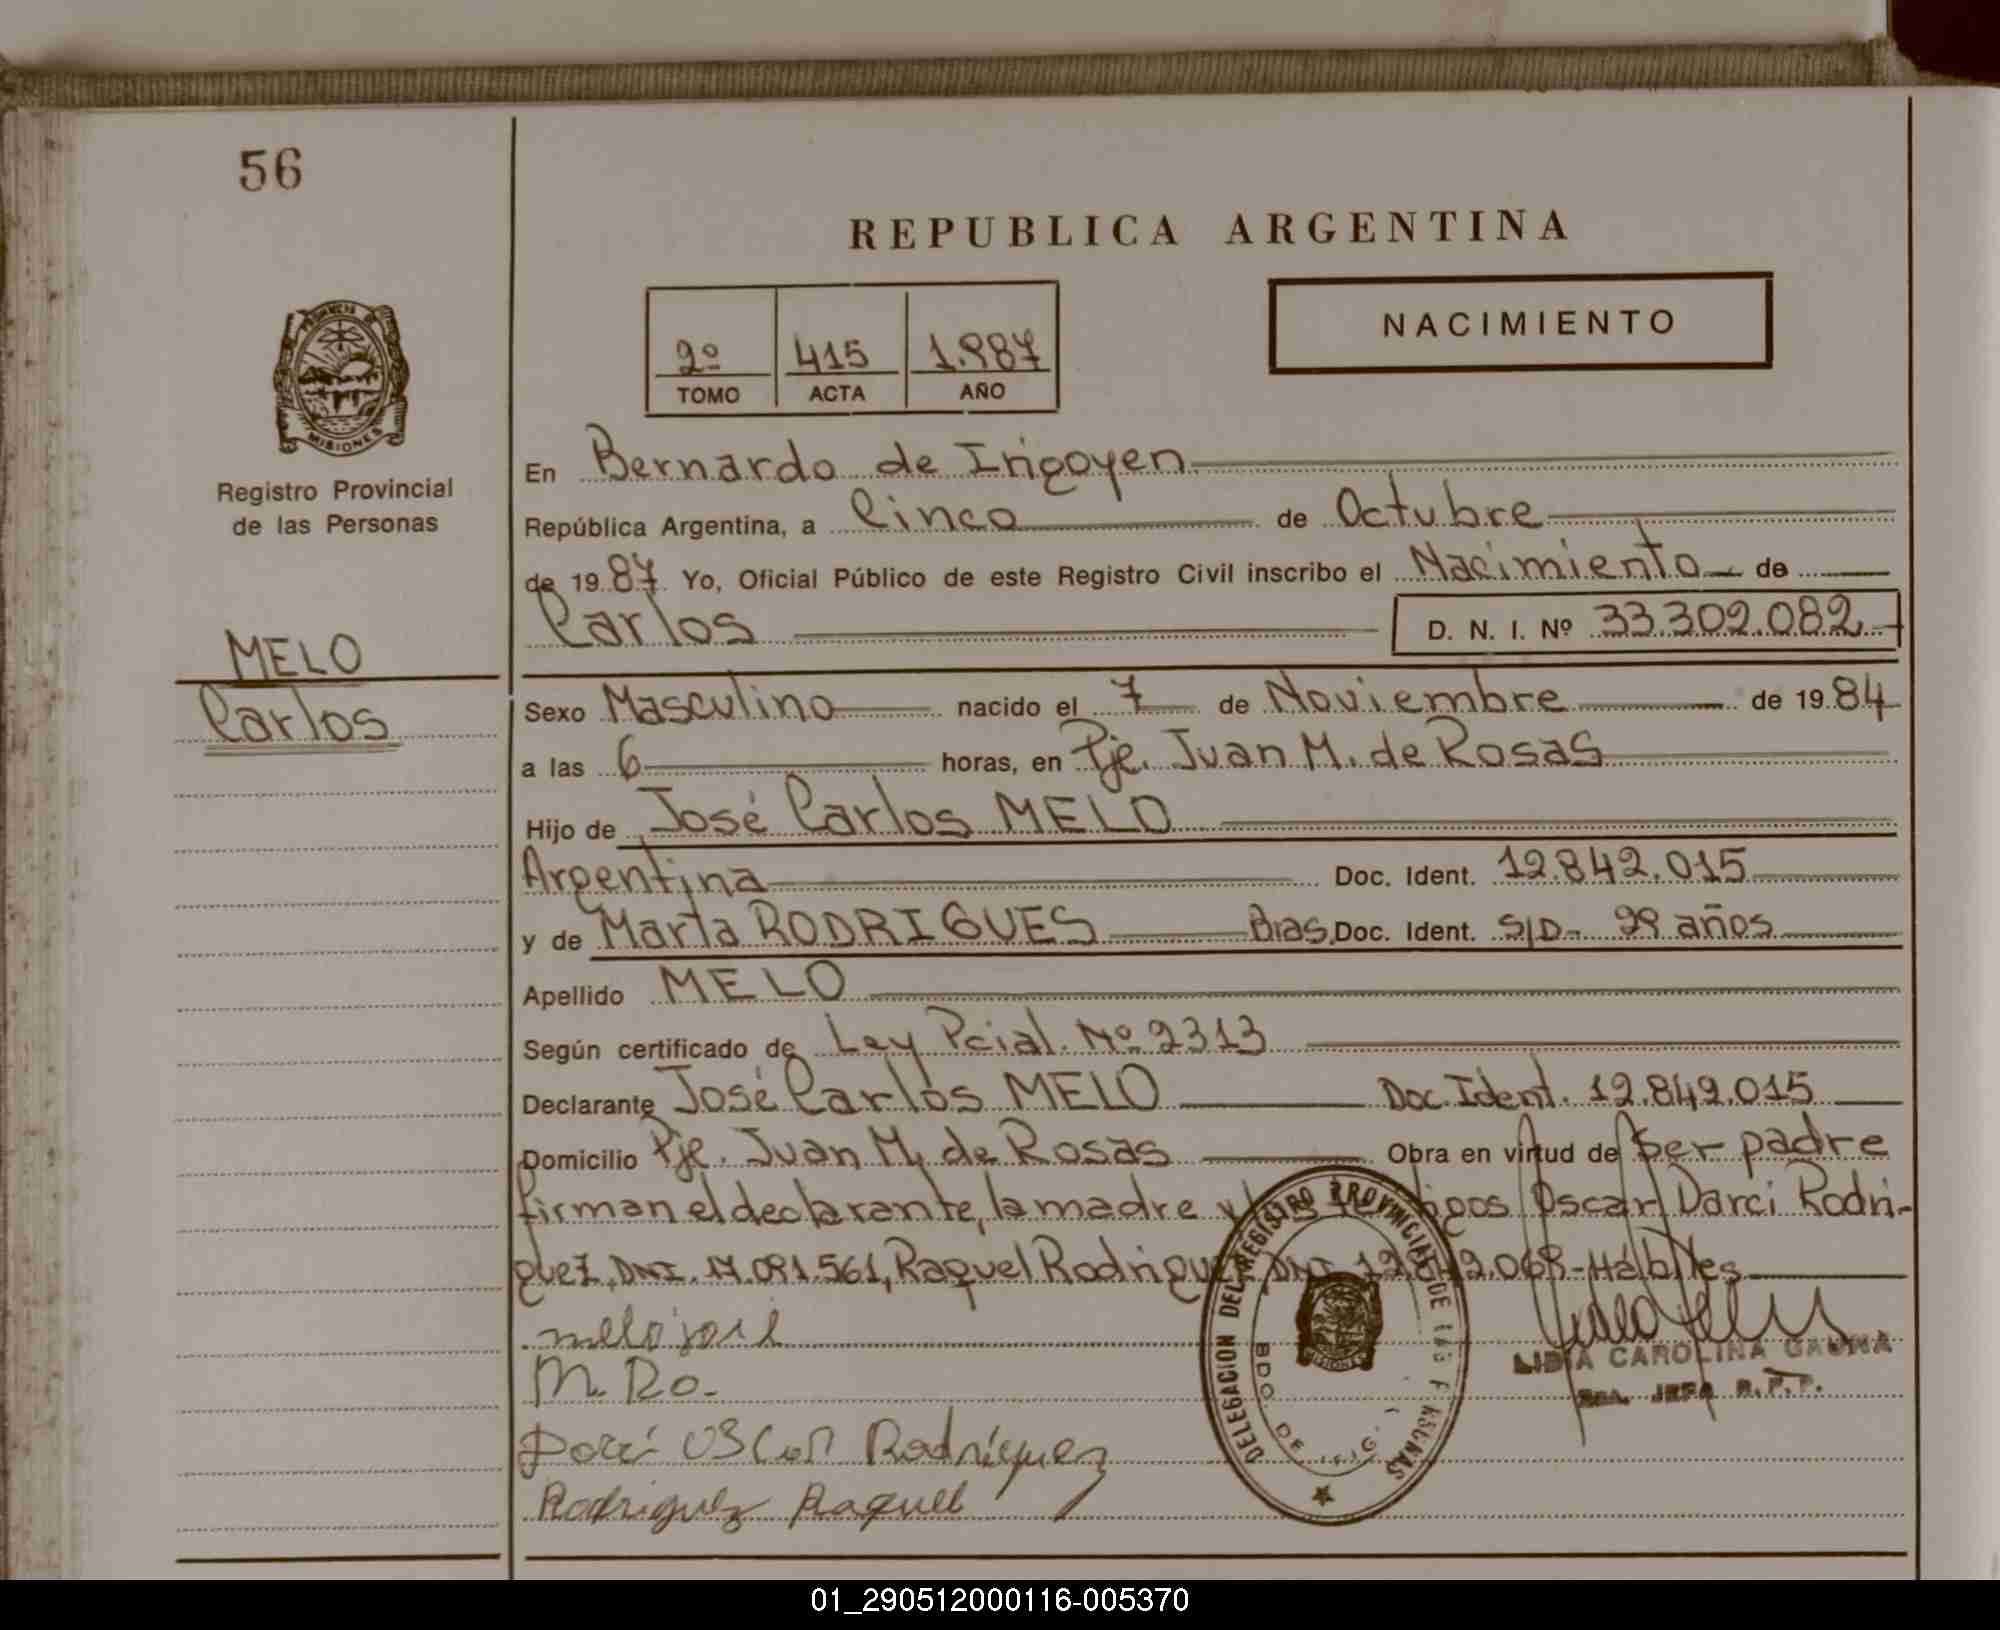 56
REPUBLICA ARGENTINA
NACIMIENTO
2º 415 1.987
TOMO ACTA AÑO
PROVINCIA DE
MISIONES
Registro Provincial
de las Personas
MELO
Carlos
En Bernardo de Irigoyen
República Argentina, a Cinco de Octubre
de 19 87 Yo, Oficial Público de este Registro Civil inscribo el Nacimiento de
Carlos D. N. I. Nº 33.302.082
Sexo Masculino nacido el 7 de Noviembre de 19 84
a las 6 horas, en Pje. Juan M. de Rosas
Hijo de José Carlos MELO
Argentina Doc. Ident. 12.842.015
y de Marta RODRIGUES Bras. Doc. Ident. S/D- 29 años
Apellido MELO
Según certificado de Ley Pcial. Nº 2313
Declarante José Carlos MELO Doc. Ident. 12.842.015
Domicilio Pje. Juan M. de Rosas Obra en virtud de Ser padre
firman el declarante, la madre y los testigos Oscar Darci Rodri-
guez, DNI. 17.091.561, Raquel Rodriguez DNI 12.842.068-Hábiles
melo jose
M. Ro.
Oscar Rodríguez
Rodriguez Raquel
DELEGACION DEL REGISTRO PROVINCIAL DE LAS PERSONAS
BDO DE IRIG.
MISIONES
LIDIA CAROLINA GAUNA
JEFA R.P.P.
01_290512000116-005370